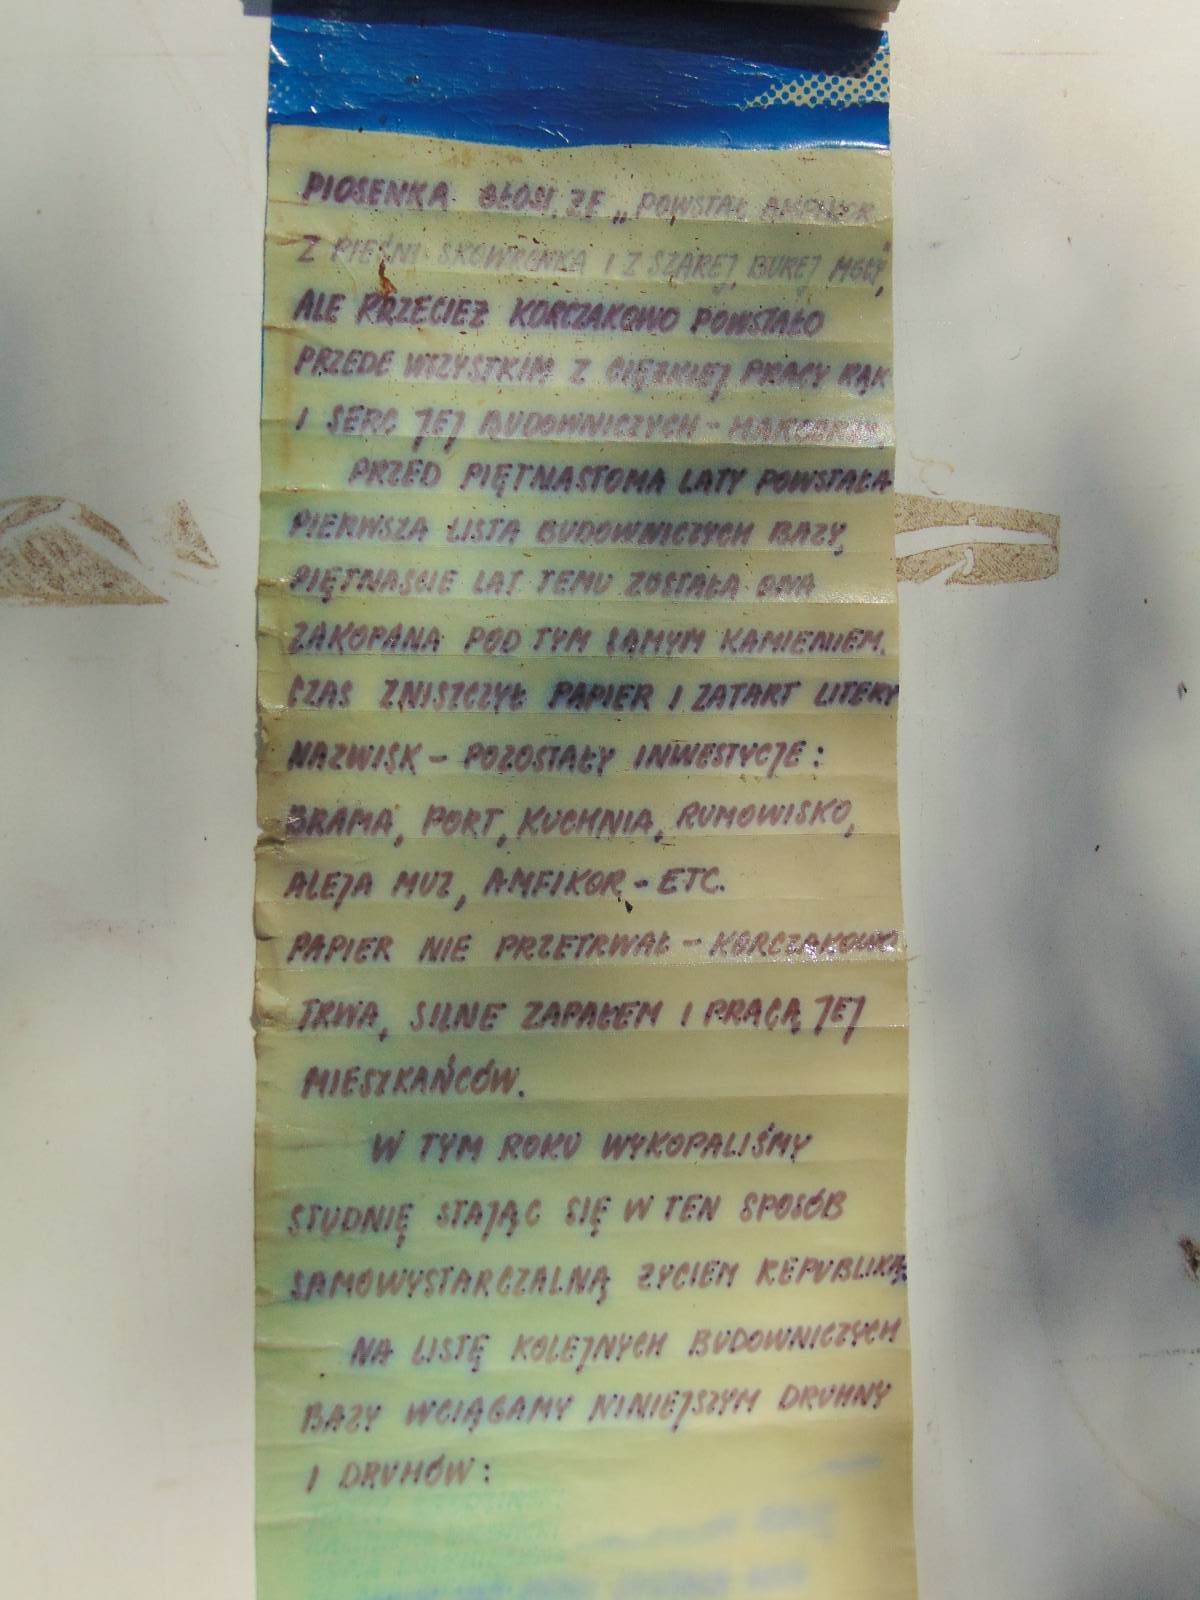 PIOSENKA GŁOSI, ŻE „POWSTAŁ AMFIKOR
Z PIEŚNI SKOWRONKA I Z SZAREJ, BUREJ MGŁY”,
ALE PRZECIEŻ KORCZAKOWO POWSTAŁO
PRZEDE WSZYSTKIM Z CIĘŻKIEJ PRACY RĄK
I SERC JEJ BUDOWNICZYCH -
PRZED PIĘTNASTOMA LATY POWSTAŁA
PIERWSZA LISTA BUDOWNICZYCH BAZY,
PIĘTNAŚCIE LAT TEMU ZOSTAŁA ONA
ZAKOPANA POD TYM SAMYM KAMIENIEM.
CZAS ZNISZCZYŁ PAPIER I ZATARŁ LITERY
NAZWISK - POZOSTAŁY INWESTYCJE:
BRAMA, PORT, KUCHNIA, RUMOWISKO,
ALEJA MUZ, AMFIKOR - ETC.
PAPIER NIE PRZETRWAŁ - KORCZAKOWO
TRWA, SILNE ZAPAŁEM I PRACĄ JEJ
MIESZKAŃCÓW.
W TYM ROKU WYKOPALIŚMY
STUDNIĘ STAJĄC SIĘ W TEN SPOSÓB
SAMOWYSTARCZALNĄ ŻYCIEM REPUBLIKĄ.
NA LISTĘ KOLEJNYCH BUDOWNICZYCH
BAZY WCIĄGAMY NINIEJSZYM DRUHNY
I DRUHÓW: